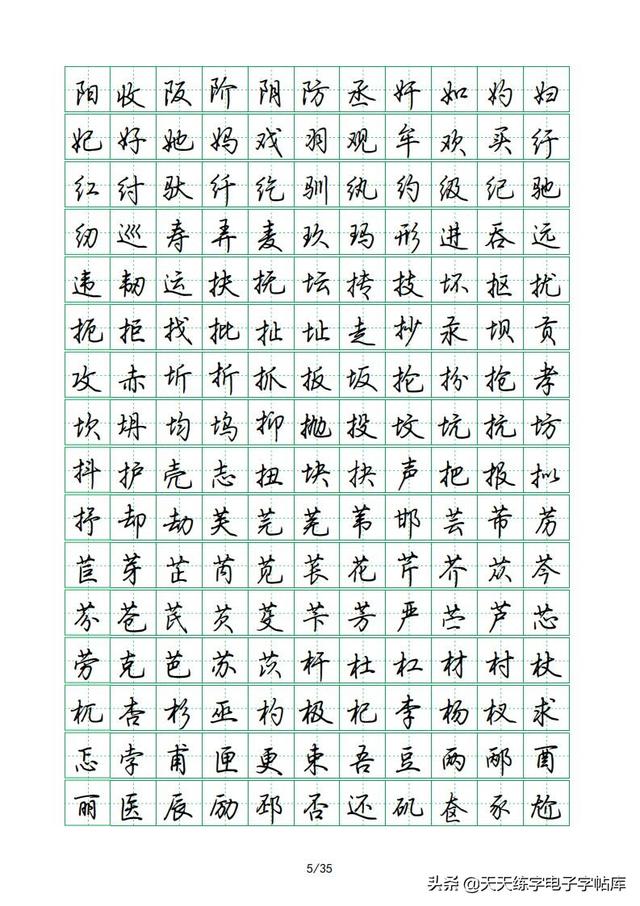 阳收阪阶阴防丞奸如妁妇
妃好她妈戏羽观牟欢买纡
红纣驮纤纥驯纨约级纪驰
纫巡寿弄麦玖玛形进吞远
违韧运扶抚坛抟技坏抠扰
扼拒找批扯址走抄汞坝贡
攻赤圻折抓扳坂抡扮抢孝
坎坍均坞抑抛投坟坑抗坊
抖护壳志扭块抉声把报拟
抒却劫芙芫芜苇邯芸芾苈
苣芽芷芮苋苌花芹芥苁芩
芬苍芪芡芟苄芳严苎芦芯
劳克芭苏苡杆杜杠材村杖
杌杏杉巫杓极杞李杨杈求
忑孛甫匣更束吾豆两邴酉
丽医辰励邳否还矶奁豕尬
5/35
头条@天天练字电子字帖库